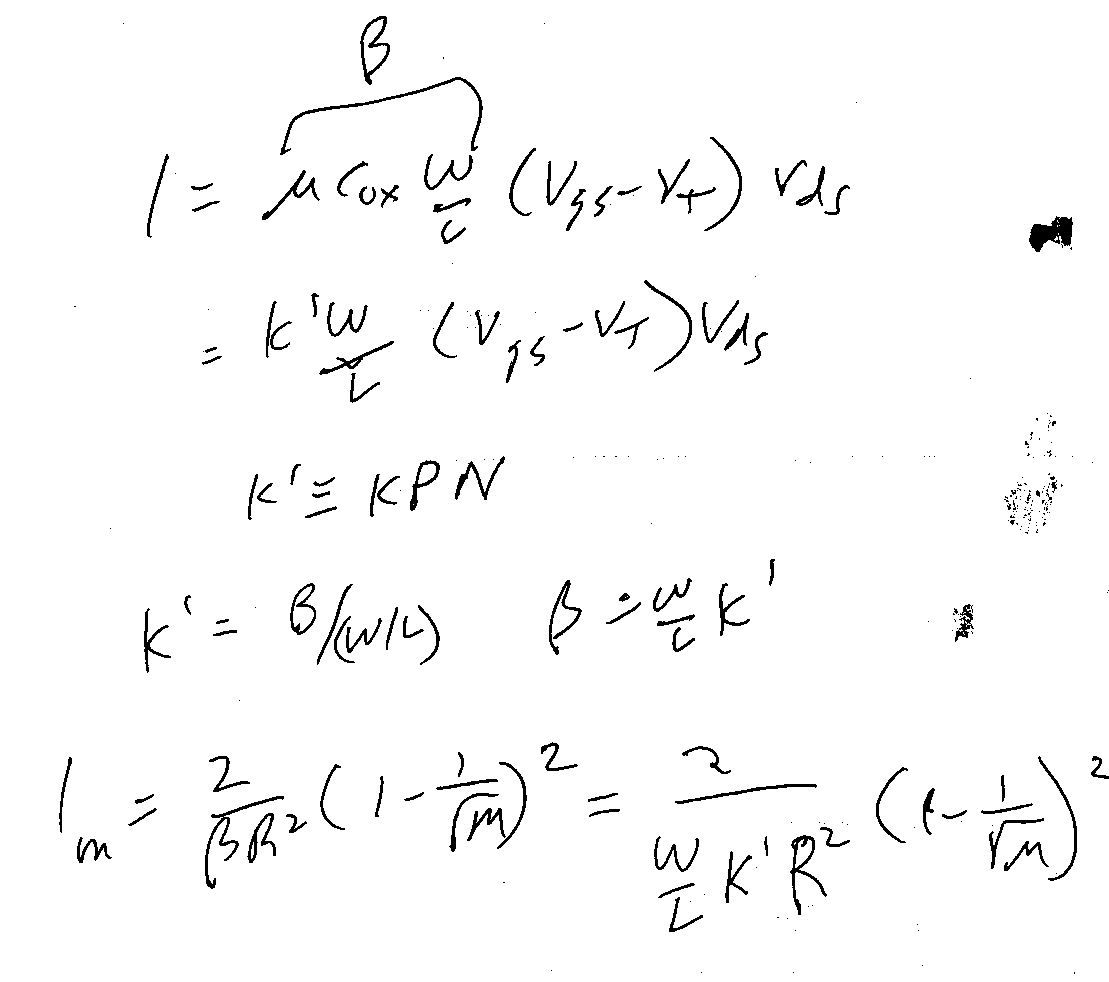 β
I = μ Cox W/L (Vgs - VT) Vds
= K' W/L (Vgs - VT) Vds
K' ≡ KPN
K' = β/(W/L) β = W/L K'
Im = 2/(βR²) (1 - 1/√m)² = 2/(W/L K' R²) (1 - 1/√m)²